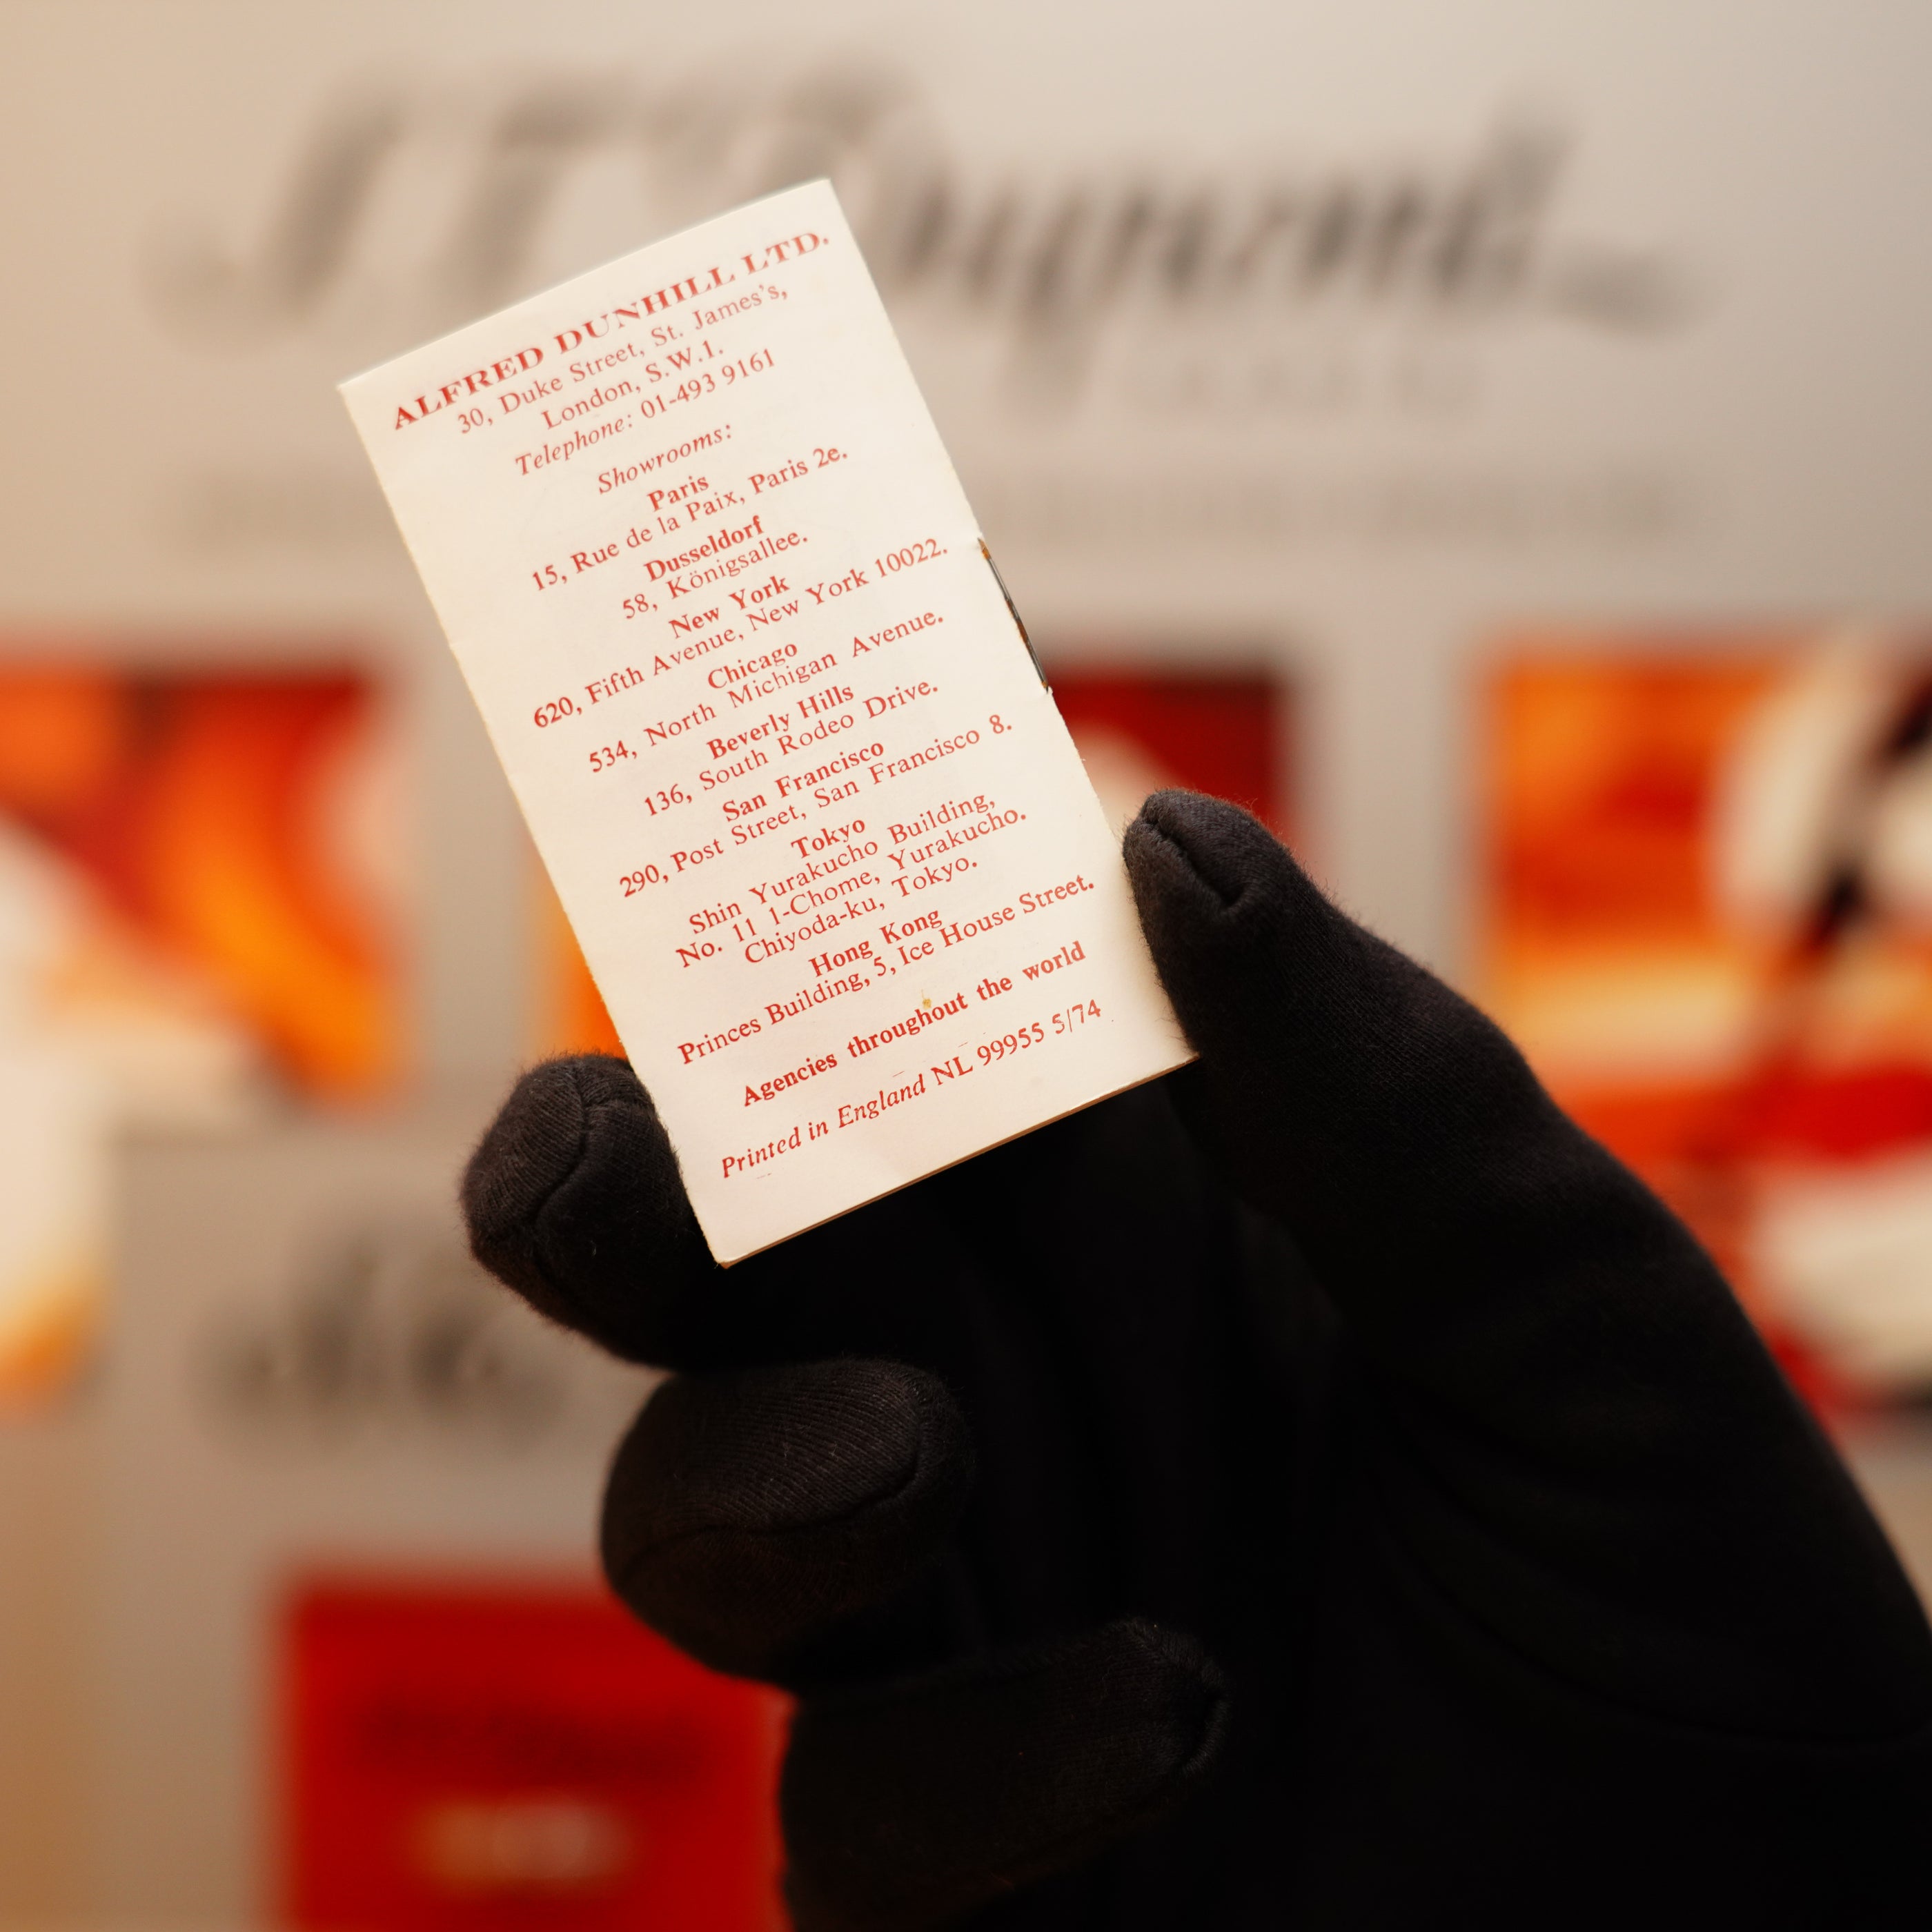 S.T. Dupont
ALFRED DUNHILL LTD.
30, Duke Street, St. James's,
London, S.W.1.
Telephone: 01-493 9161
Showrooms:
Paris
15, Rue de la Paix, Paris 2e.
Dusseldorf
58, Königsallee.
New York
620, Fifth Avenue, New York 10022.
Chicago
534, North Michigan Avenue.
Beverly Hills
136, South Rodeo Drive.
San Francisco
290, Post Street, San Francisco 8.
Tokyo
Shin Yurakucho Building,
No. 11 1-Chome, Yurakucho.
Chiyoda-ku, Tokyo.
Hong Kong
Princes Building, 5, Ice House Street.
Agencies throughout the world
Printed in England NL 99955 5/74